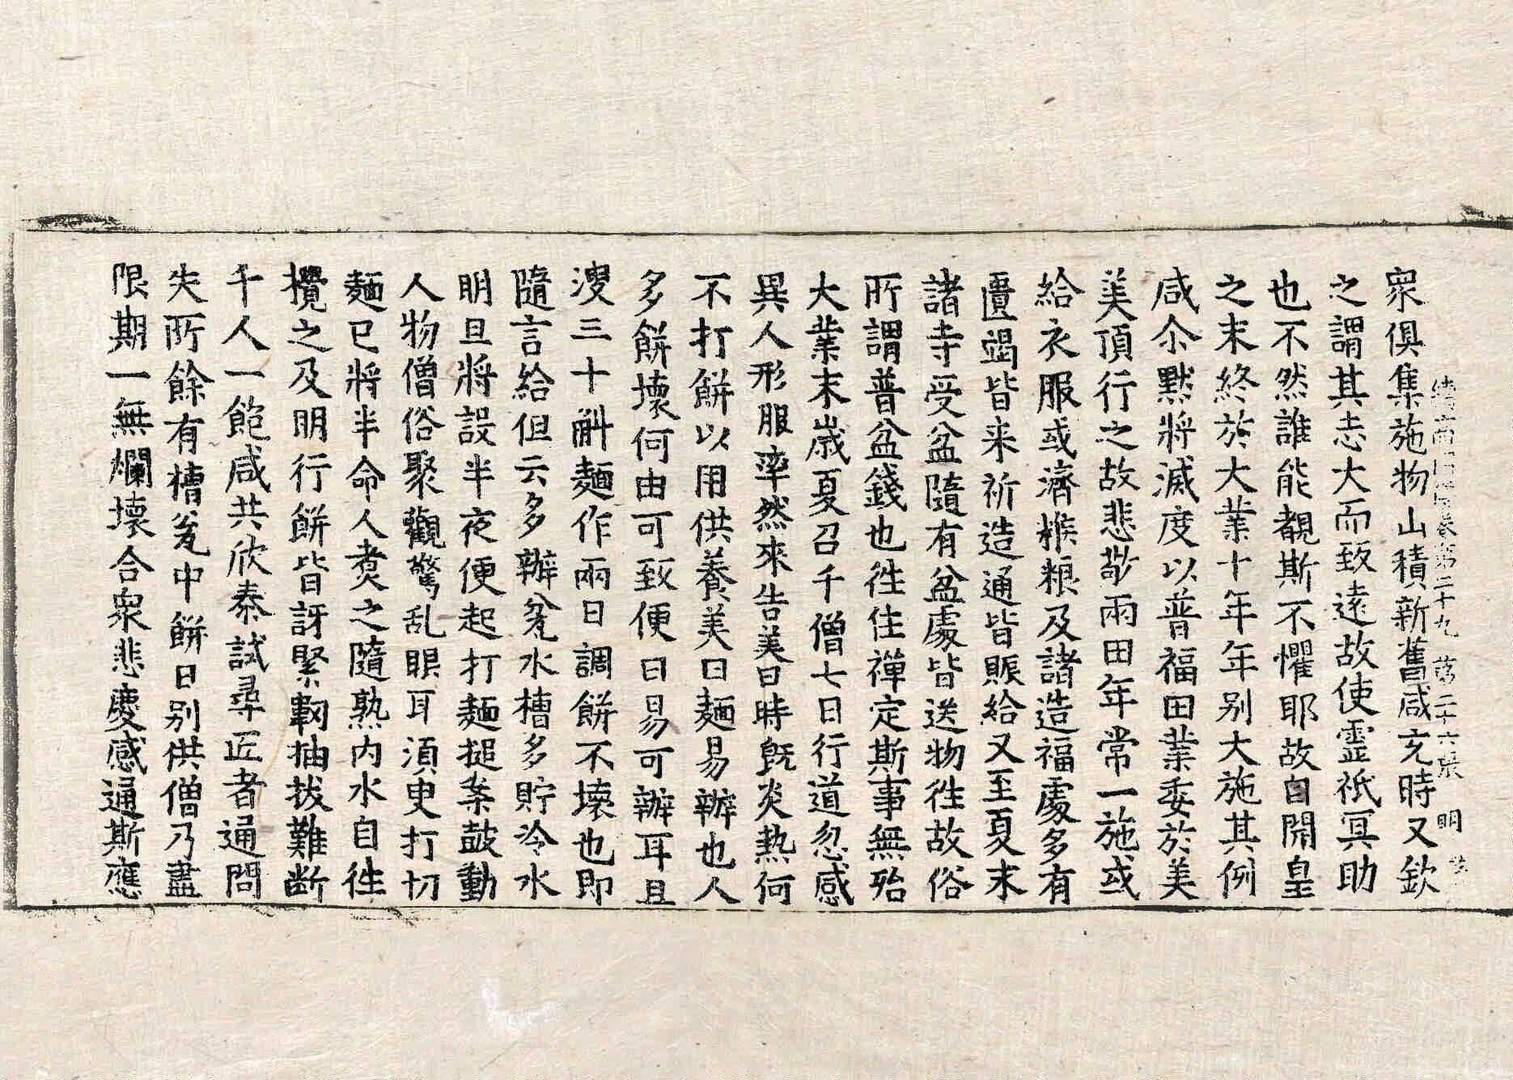 衆俱集施物山積新舊咸充時又欽
續高僧傳卷第二十九 第二十六張 明
之謂其志大而致遠故使靈祇冥助
也不然誰能覩斯不懼耶故自開皇
之末終於大業十年年别大施其例
咸尒默將滅度以普福田業委於美
美頂行之故悲敬兩田年常一施或
給衣服或濟糇粮及諸造福處多有
匱竭皆来祈造通皆賑給又至夏末
諸寺受盆隨有盆處皆送物徃故俗
所謂普盆錢也徃住禪定斯事無殆
大業末歲夏召千僧七日行道忽感
異人形服率然來告美曰時旣炎熱何
不打餅以用供養美曰麺易辦也人
多餅壞何由可致便曰易可辦耳且
溲三十斛麺作兩日調餅不壞也即
隨言給但云多辦瓮水槽多貯冷水
明旦將設半夜便起打麺搥案鼓動
人物僧俗聚觀驚乱眼耳湏臾打切
麺已將半命人煑之隨熟内水自徃
攪之及明行餅皆訝緊靭抽拔難断
千人一飽咸共欣泰試尋匠者通問
失所餘有槽瓮中餅日别供僧乃盡
限期一無爛壞合衆悲慶感通斯應